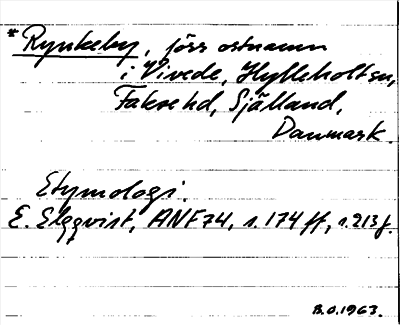 * Rynkeby, förr ostnamn
i Vivede, Hylleholt sn,
Fakse hd, Själland,
Danmark.
Etymologi.
E. Elgqvist, ANF 74, s. 174 ff, s. 213 f.
B.O. 1963.